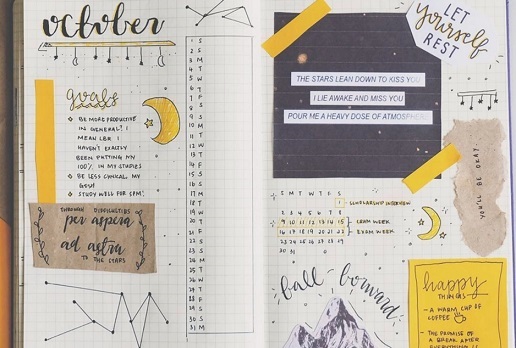 october
goals
BE MORE PRODUCTIVE
IN GENERAL! I
MEAN LBR I
HAVEN'T EXACTLY
BEEN PUTTING MY
100% IN MY STUDIES
BE LESS CYNICAL MY
GOSH
STUDY WELL FOR
THROUGH DIFFICULTIES
per aspera
ad astra
TO THE STARS
1 S
2 S
3 M
4 T
5 W
6 T
7 F
8 S
9 S
10 M
11 T
12 W
13 T
14 F
15 S
16 S
17 M
18 T
19 W
20 T
21 F
22 S
23 S
24 M
25 T
26 W
27 T
28 F
29 S
30 S
31 M
THE STARS LEAN DOWN TO KISS YOU
I LIE AWAKE AND MISS YOU
POUR ME A HEAVY DOSE OF ATMOSPHERE
LET
yourself
REST
YOU'LL BE OKAY.
S M T W T F S
1 - SCHOLARSHIP INTERVIEW
2 3 4 5 6 7 8
9 10 11 12 13 14 15 EXAM WEEK
16 17 18 19 20 21 22 EXAM WEEK
23 24 25 26 27 28 29
30
fall forward
happy
THINGS
- A WARM CUP OF
COFFEE
- THE PROMISE OF
A BREAK AFTER
EVERYTHING IS